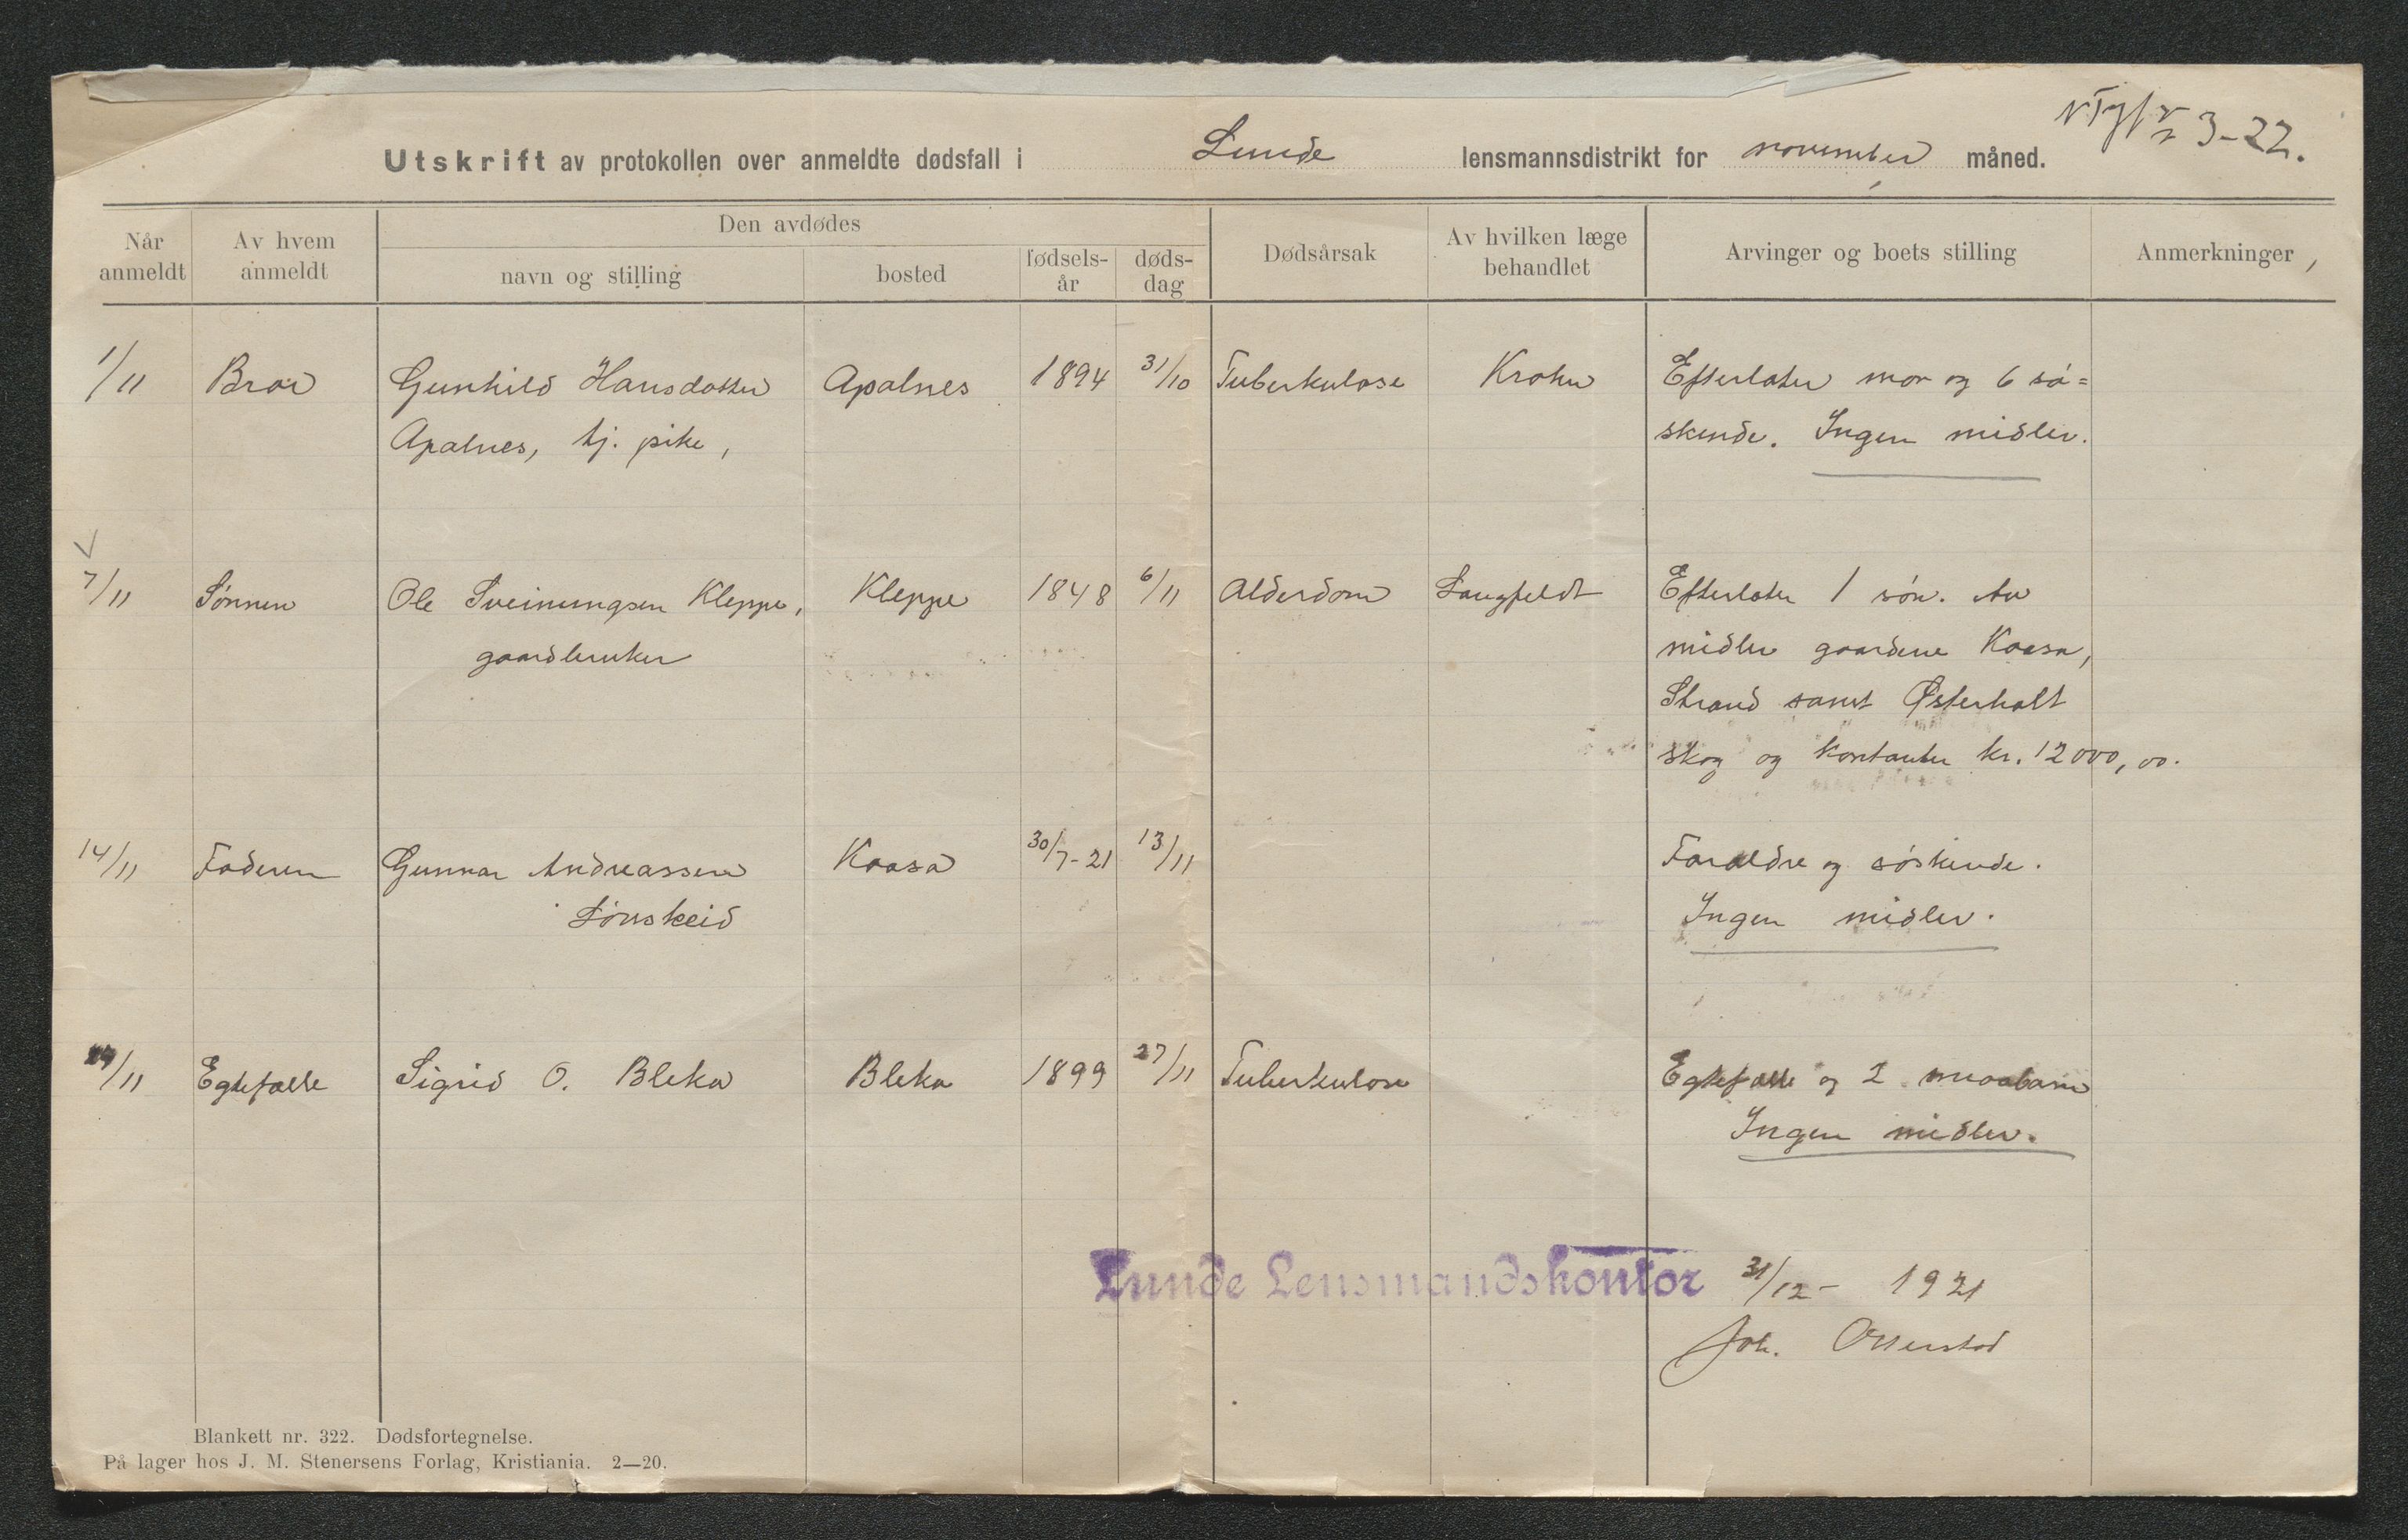 3-22.
Utskrift av protokollen over anmeldte dødsfall i Lunde lensmannsdistrikt for november måned.
Når anmeldt
Av hvem anmeldt
Den avdødes
navn og stilling
bosted
fødsels-
år
døds-
dag
Dødsårsak
Av hvilken læge
behandlet
Arvinger og boets stilling
Anmerkninger
1/11 Bror Gunhild Hansdatter Apalnes 1894 31/10 Tuberkulose Krohn Efterlater mor og 6 sø=
Apalnes, tj. pike, skende. Ingen midler.
7/11 Sønnen Ole Sveinungsen Kleppe, Kleppe 1848 6/11 Alderdom Langfeldt Efterlater 1 søn. Av
gaardbruker midler gaardene Kaasa,
Strand samt Østerholt
skog og kontanter kr. 12000,00.
14/11 Faderen Gunnar Andreassen Kaasa 30/7-21 13/11 Foræld­re og søskende.
Lønskeid Ingen midler.
/11 Egtefælle Sigrid O. Bleka Bleka 1899 27/11 Tuberkulose Egtefælle og 2 smaabarn
Ingen midler.
Lunde Lensmandskontor 31/12- 1921
Joh. Otterstad
Blankett nr. 322. Dødsfortegnelse.
På lager hos J. M. Stenersens Forlag, Kristiania. 2—20.